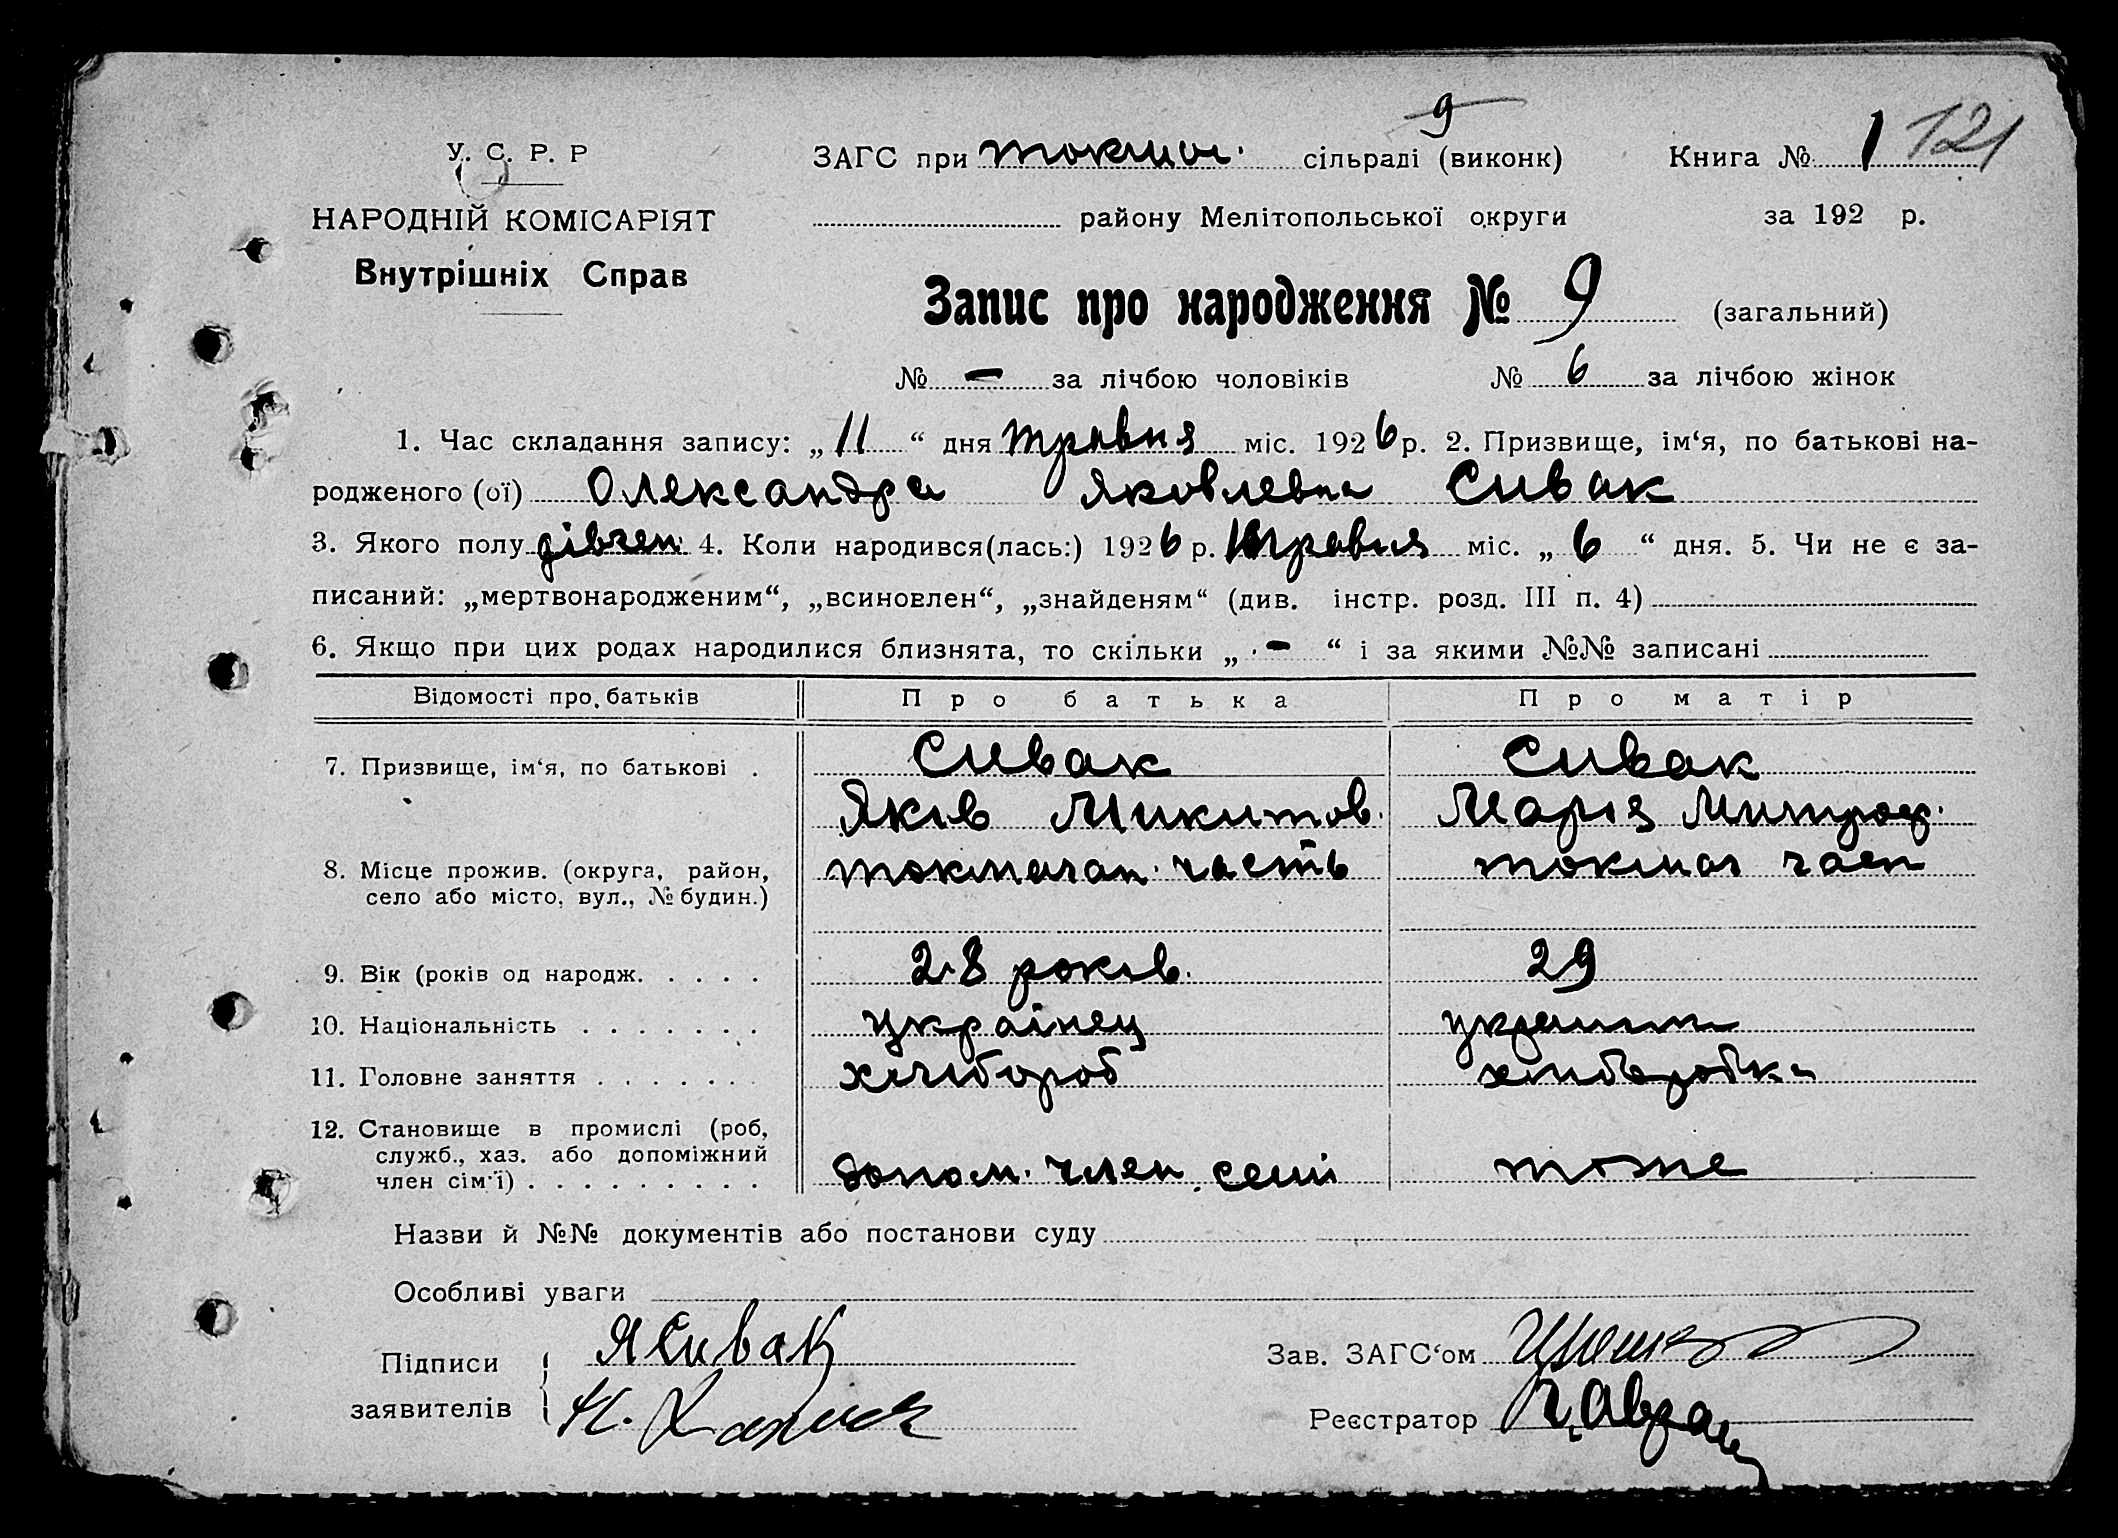 9
У. С. Р. Р ЗАГС при сільраді (виконк) Книга № 1 121
НАРОДНІЙ КОМІСАРІЯТ району Мелітопольської округи за 192 р.
Внутрішніх Справ
Запис про народження № 9 (загальний)
№ - за лічбою чоловіків № 6 за лічбою жінок
1. Час складання запису: „11“ дня травня міс. 1926 р. 2. Призвище, ім‘я, по батькові на-
родженого (ої) Олександра Яковлевна Сивак
3. Якого полу дівчен. 4. Коли народився(лась:) 1926 р. травня міс. „6“ дня. 5. Чи не є за-
писаний: „мертвонародженим“, „всиновлен“, „знайденям“ (див. інстр. розд. III п. 4)
6. Якщо при цих родах народилися близнята, то скільки „-“ і за якими №№ записані
Відомості про батьків Про батька Про матір
7. Призвище, ім‘я, по батькові . Сивак Сивак
Яків Микитов. Марія Митроф.
8. Місце прожив. (округа, район, часть
село або місто, вул., № будин.)
9. Вік (років од народж. . . . . 28 років. 29
10. Національність . . . . . . . українец
11. Головне заняття . . . . . . . хлібороб хліборобка
12. Становище в промислі (роб,
служб., хаз. або допоміжний
член сім‘ї) . . . . . . . . . допом. член семі тоже
Назви й №№ документів або постанови суду
Особливі уваги
Підписи Я Сивак Зав. ЗАГС‘ом
заявителів Реєстратор